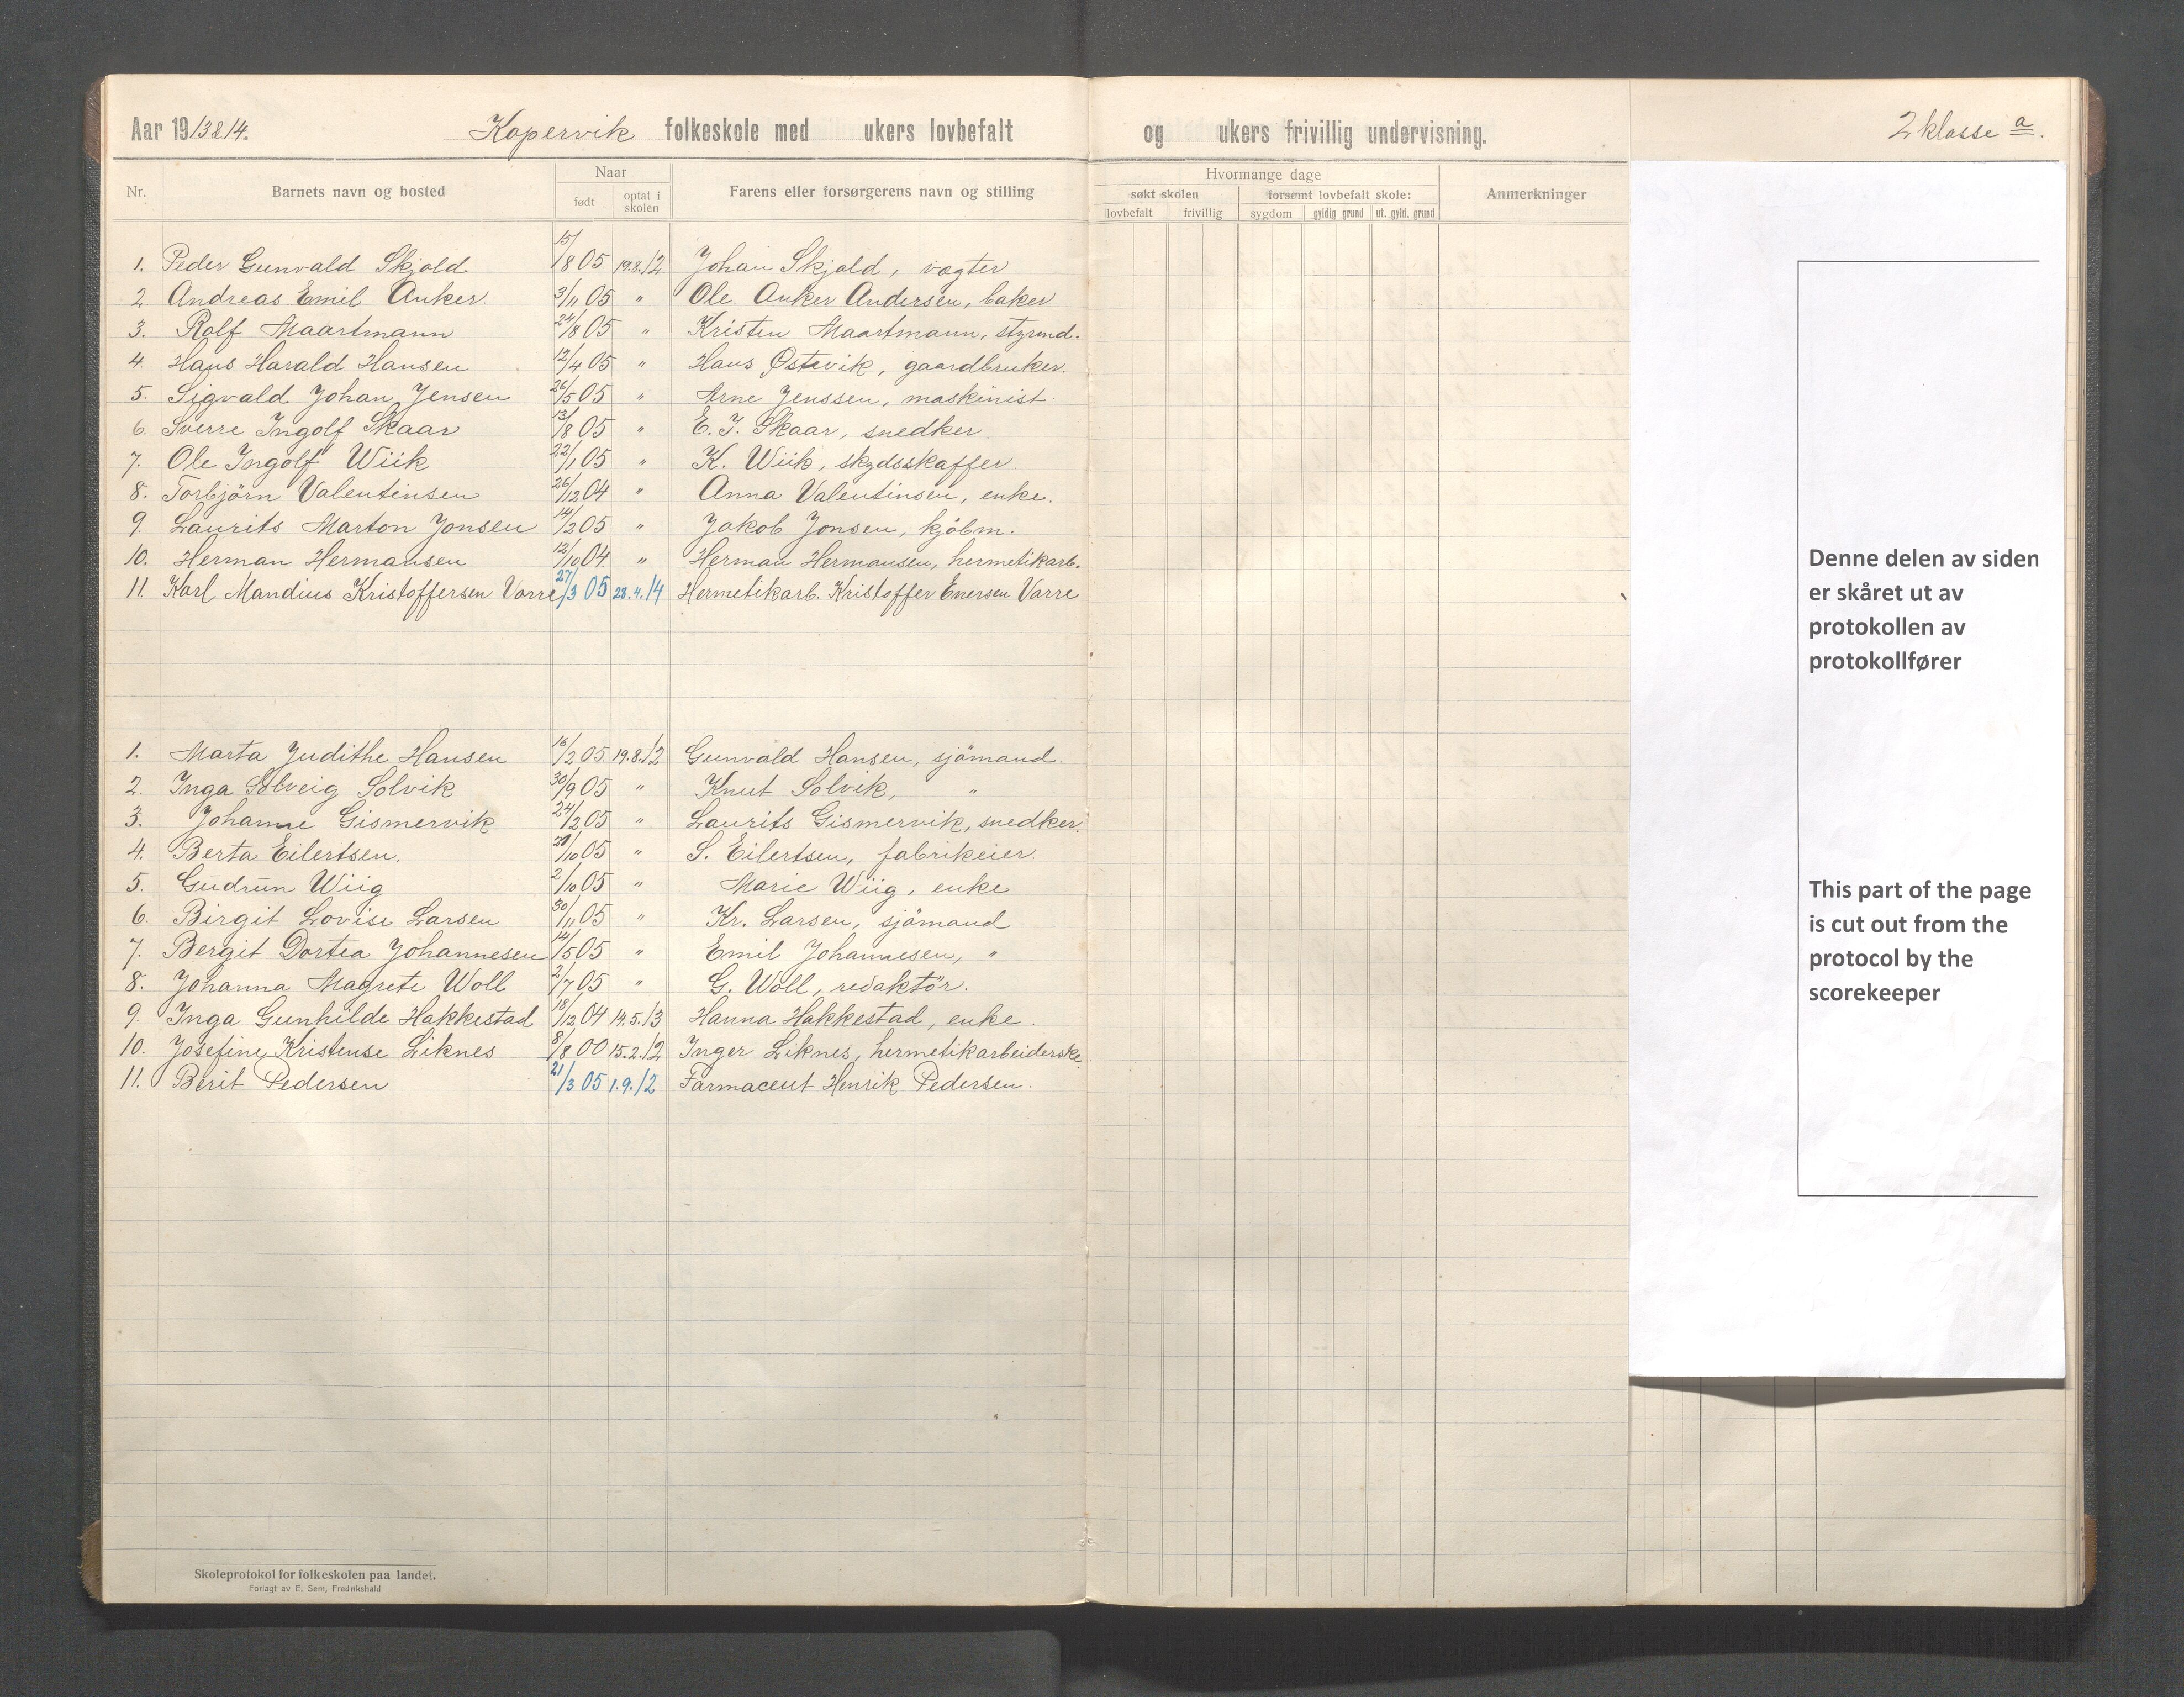 Aar 1913 & 14. Kopervik folkeskole med ukers lovbefalt og ukers frivillig undervisning. 2 klasse a.
Nr. Barnets navn og bosted Naar født optat i skolen Farens eller forsørgerens navn og stilling Hvormange dage søkt skolen lovbefalt frivillig forsømt lovbefalt skole: sygdom gyldig grund ut. gyld. grund Anmerkninger
1. Peder Gunvald Skjold 15/8 05 19.8.12 Johan Skjold, vægter
2. Andreas Emil Anker 3/11 05 " Ole Anker Andersen, baker
3. Rolf Maartmann 24/8 05 " Kristen Maartmann, styrmd.
4. Hans Harald Hansen 12/4 05 " Hans Østevik, gaardbruker.
5. Sigvald Johan Jensen 26/5 05 " Arne Jenssen, maskinist.
6. Sverre Ingolf Skaar 13/8 05 " E. I. Skaar, snedker.
7. Ole Ingolf Wiik 22/1 05 " K. Wiik, skydsskaffer.
8. Torbjörn Valentinsen 26/12 04 " Anna Valentinsen, enke.
9. Laurits Marton Jonsen 14/2 05 " Jakob Jonsen, kjöbm.
10. Herman Hermansen 12/10 04. " Herman Hermansen, hermetikarb.
11. Karl Mandius Kristoffersen Varre 27/3 05 28.4.14 Hermetikarb. Kristoffer Enersen Varre
1. Marta Judithe Hansen 16/2 05. 19.8.12 Gunvald Hansen, sjömand.
2. Inga Solveig Solvik 30/9 05 " Knut Solvik, "
3. Johanne Gismervik 24/2 05 " Laurits Gismervik, snedker.
4. Berta Eilertsen. /10 05 " S. Eilertsen, fabrikeier.
5. Gudrun Wiig 2/10 05 " Marie Wiig, enke
6. Birgit Lovise Larsen 30/11 05 " Kr. Larsen, sjömand
7. Bergit Dortea Johannesen 14/5 05 " Emil Johannesen, "
8. Johanna Magrete Woll 2/7 05 " G. Woll, redaktör.
9. Inga Gunhilde Hakkestad 18/12 04 14.5.13 Hanna Hakkestad, enke.
10. Josefine Kristense Liknes 8/8 00 15.2.12 Inger Liknes, hermetikarbeiderske
11. Berit Pedersen 21/3 05 1.9.12 Farmaceut Henrik Pedersen.
Skoleprotokol for folkeskolen paa landet.
Forlagt av E. Sem, Fredrikshald
Denne delen av siden
er skåret ut av
protokollen av
protokollfører
This part of the page
is cut out from the
protocol by the
scorekeeper